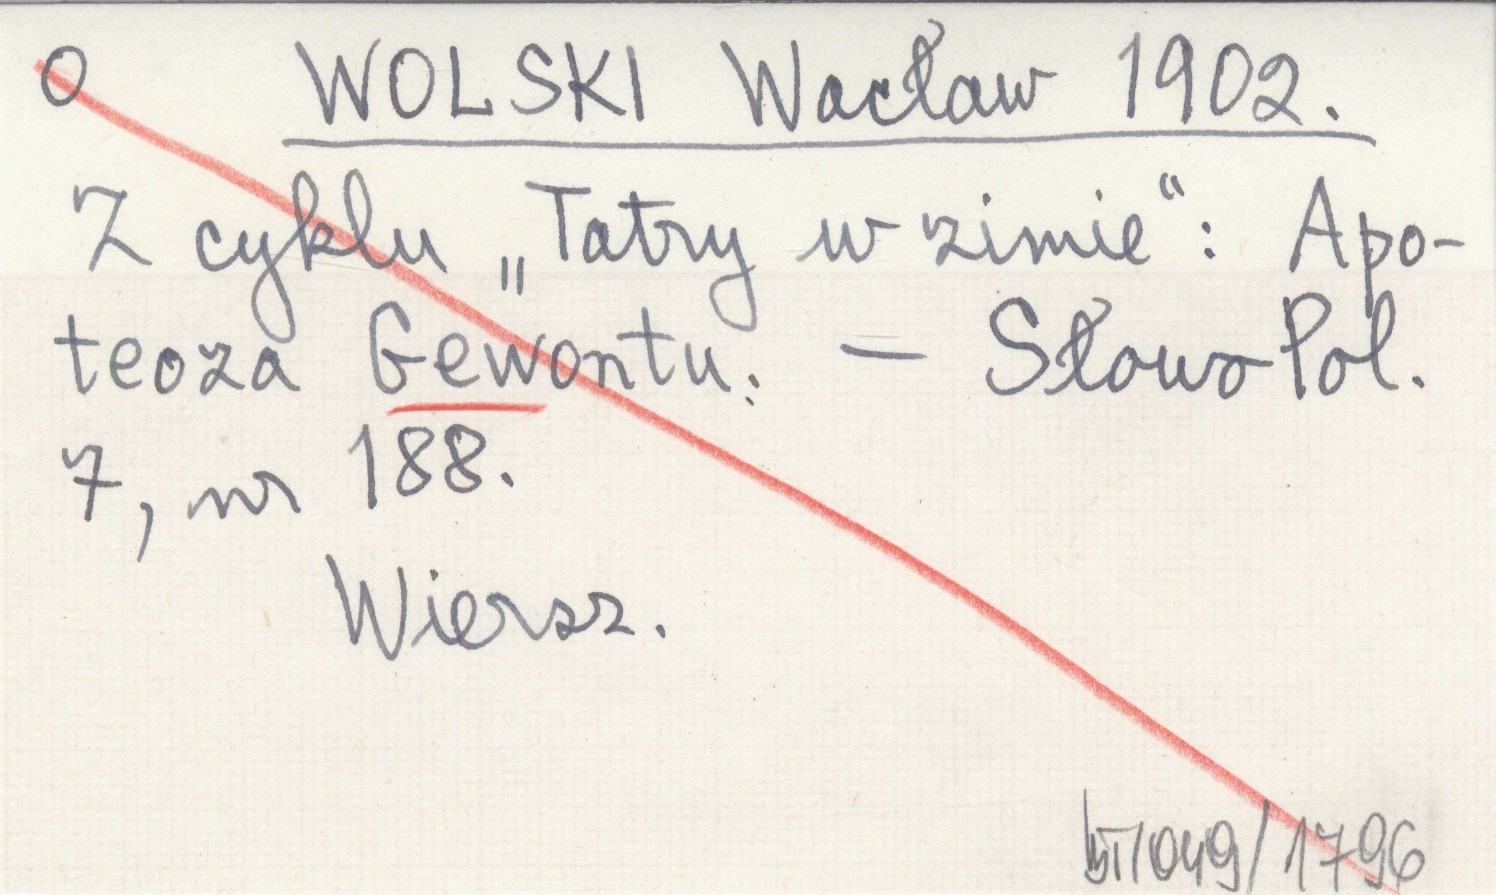 O WOLSKI Wacław 1902.
Z cyklu „Tatry w zimie“: Apo-
teoza Gewontu. — Słowo Pol.
7, nr 188.
Wiersz.
/049/1796